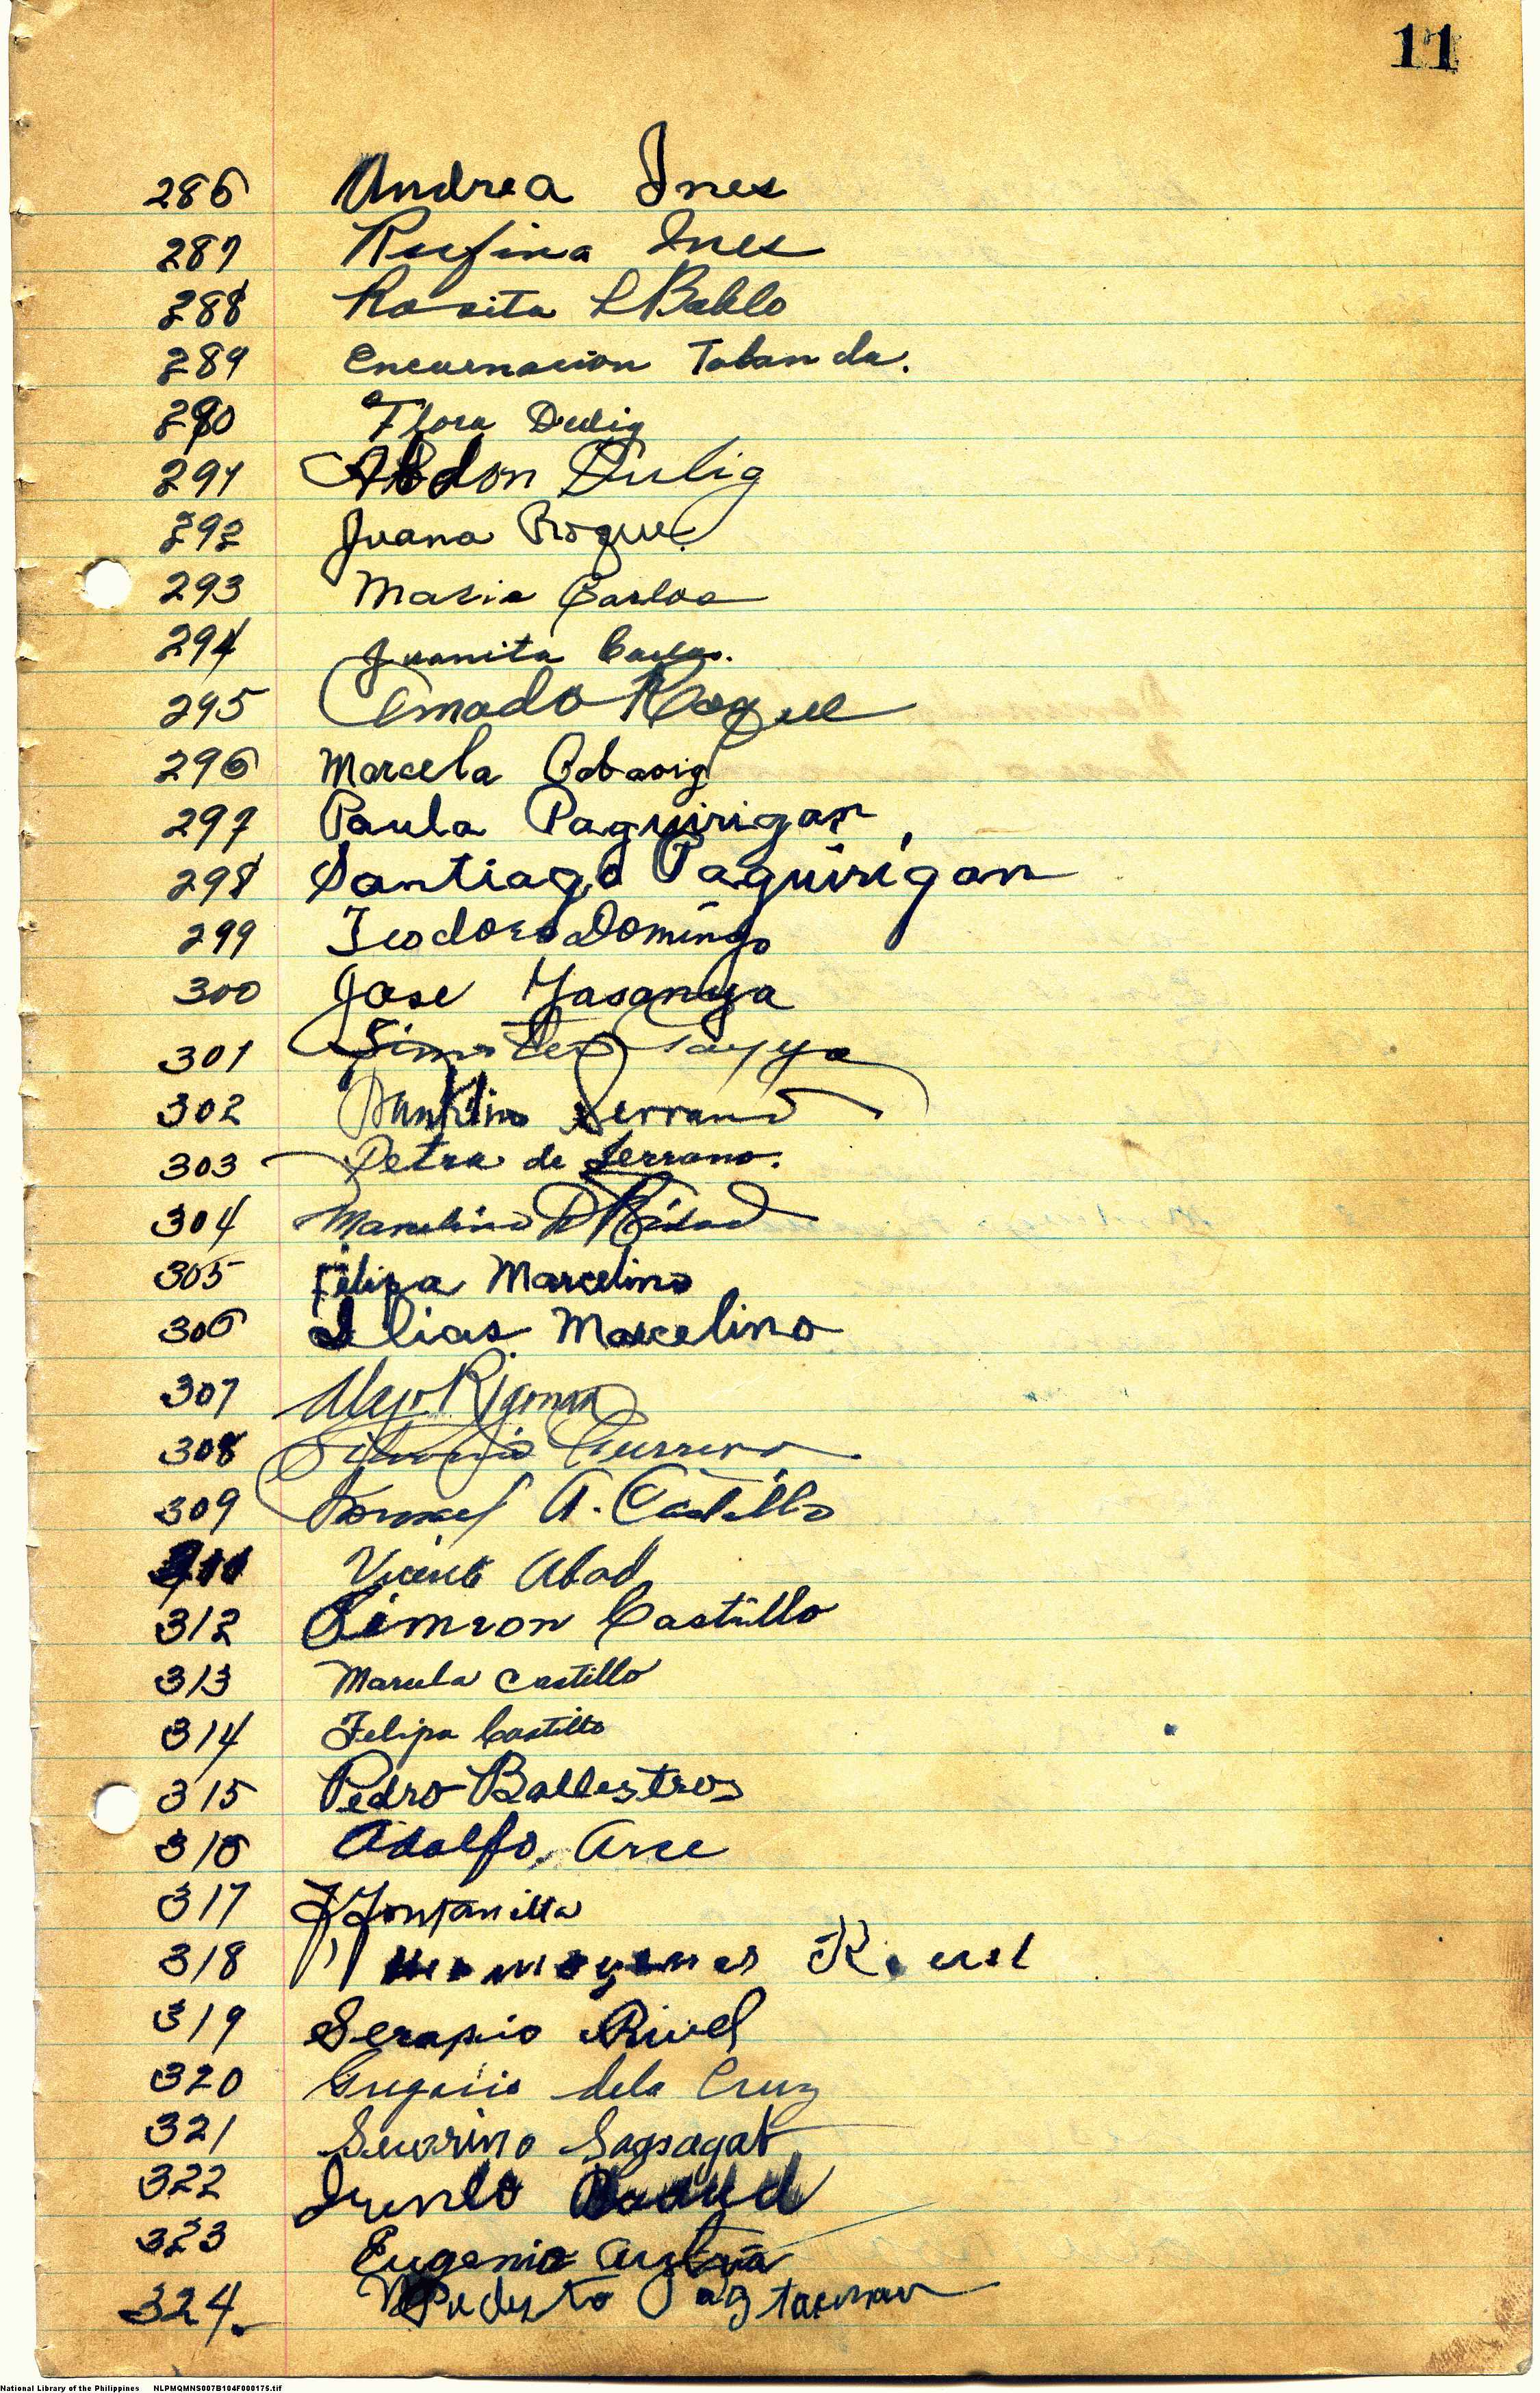 11
286 Andrea Ines
287 Rufina Ines
288 Rosita P Bablo
289 Encarnacion Tabanda.
290 Flora Dulig
291 Abdon Dulig
292 Juana Roque.
293 Maria Carlos
294 Juanita Carlos.
295 Amado Roque
296 Marcela Cabasig
297 Paula Paguirigan,
298 Santiago Paguirigan
299 Teodoro Domingo
300 Jose Yasangya
301 Simoteo
302 Franklin Serrano
303 Petra de Serrano.
304 Marcelino
305 Felipa Marcelino
306 Elias Marcelino
307 Alejo Rigonan
308 Guerrero
309 A. Castillo
Vicente Abad
312 Simeon Castillo
313 Marcela Castillo
314 Felipa Castillo
315 Pedro Ballestros
316 Adolfo Arce
317 Fontanilla
318 Hermogenes
319 Serapio Rivel
320 Gregorio dela Cruz
321 Severino Sagsagat
322
323 Eugenio Austria
324.
National Library of the Philippines NLPMQMNS007B104F000175.tif